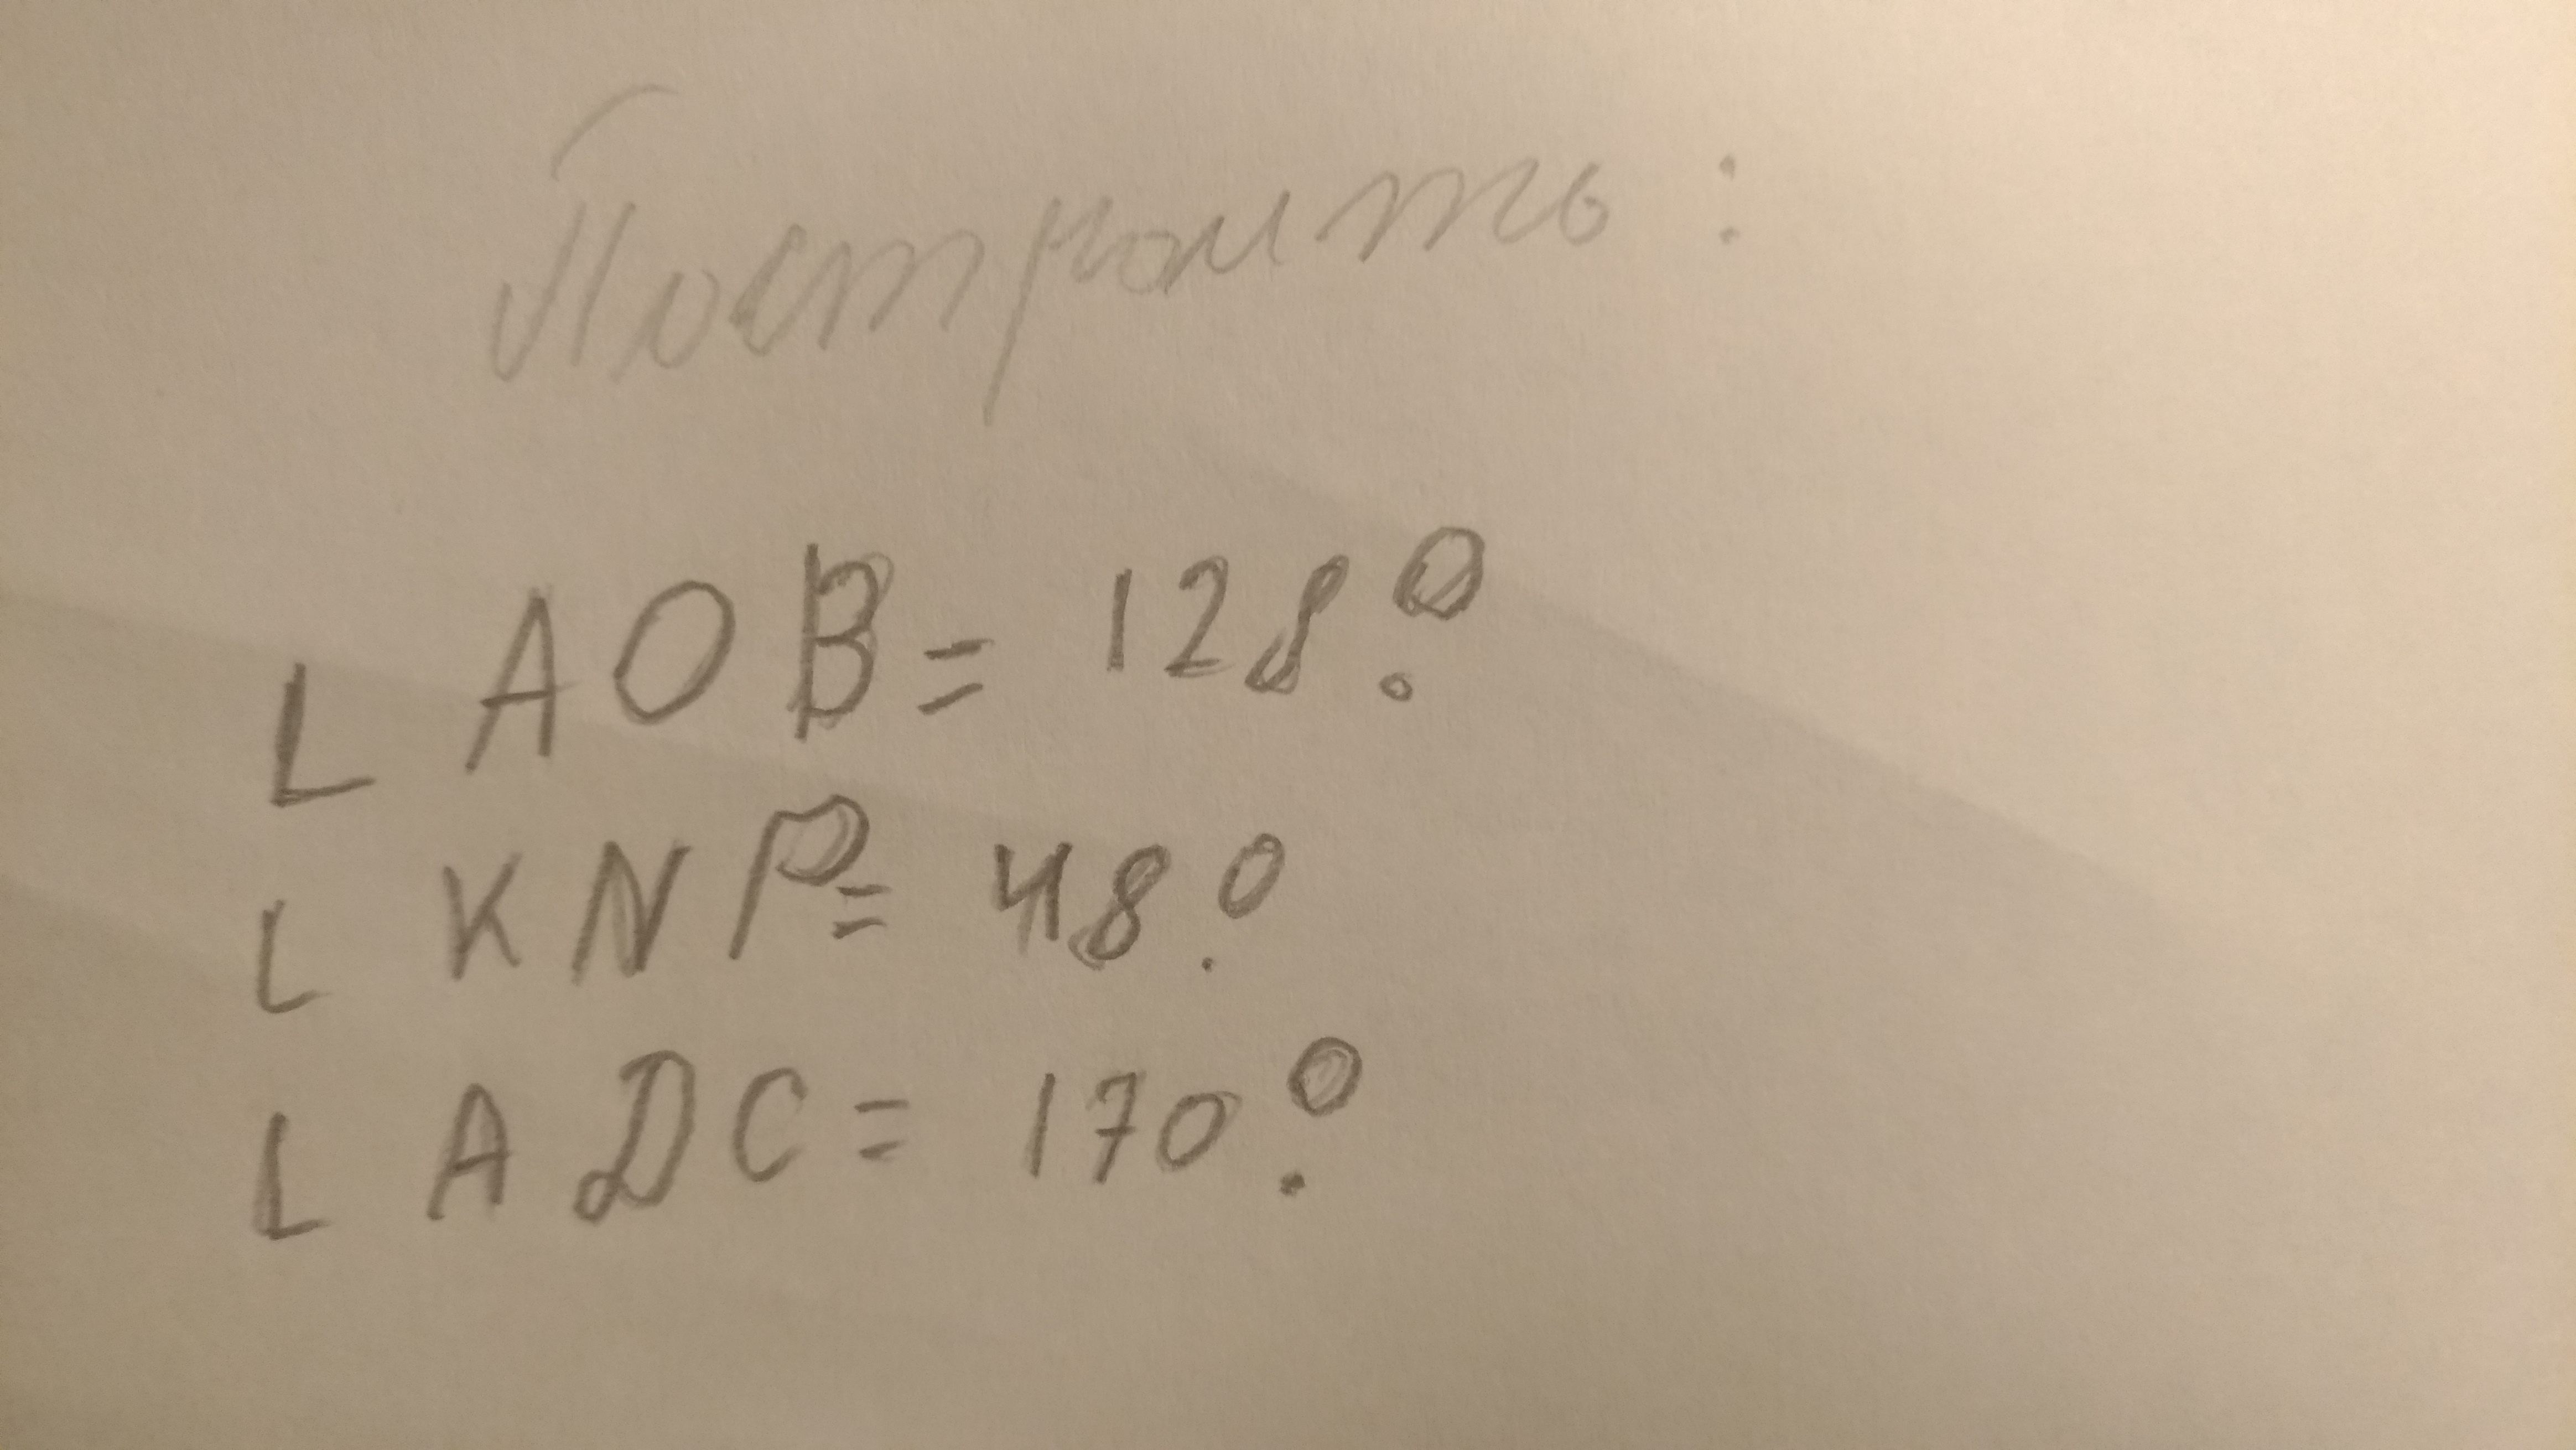 Построить:
∠ AOB = 128.°
∠ KNP = 48.°
∠ ADC = 170.°